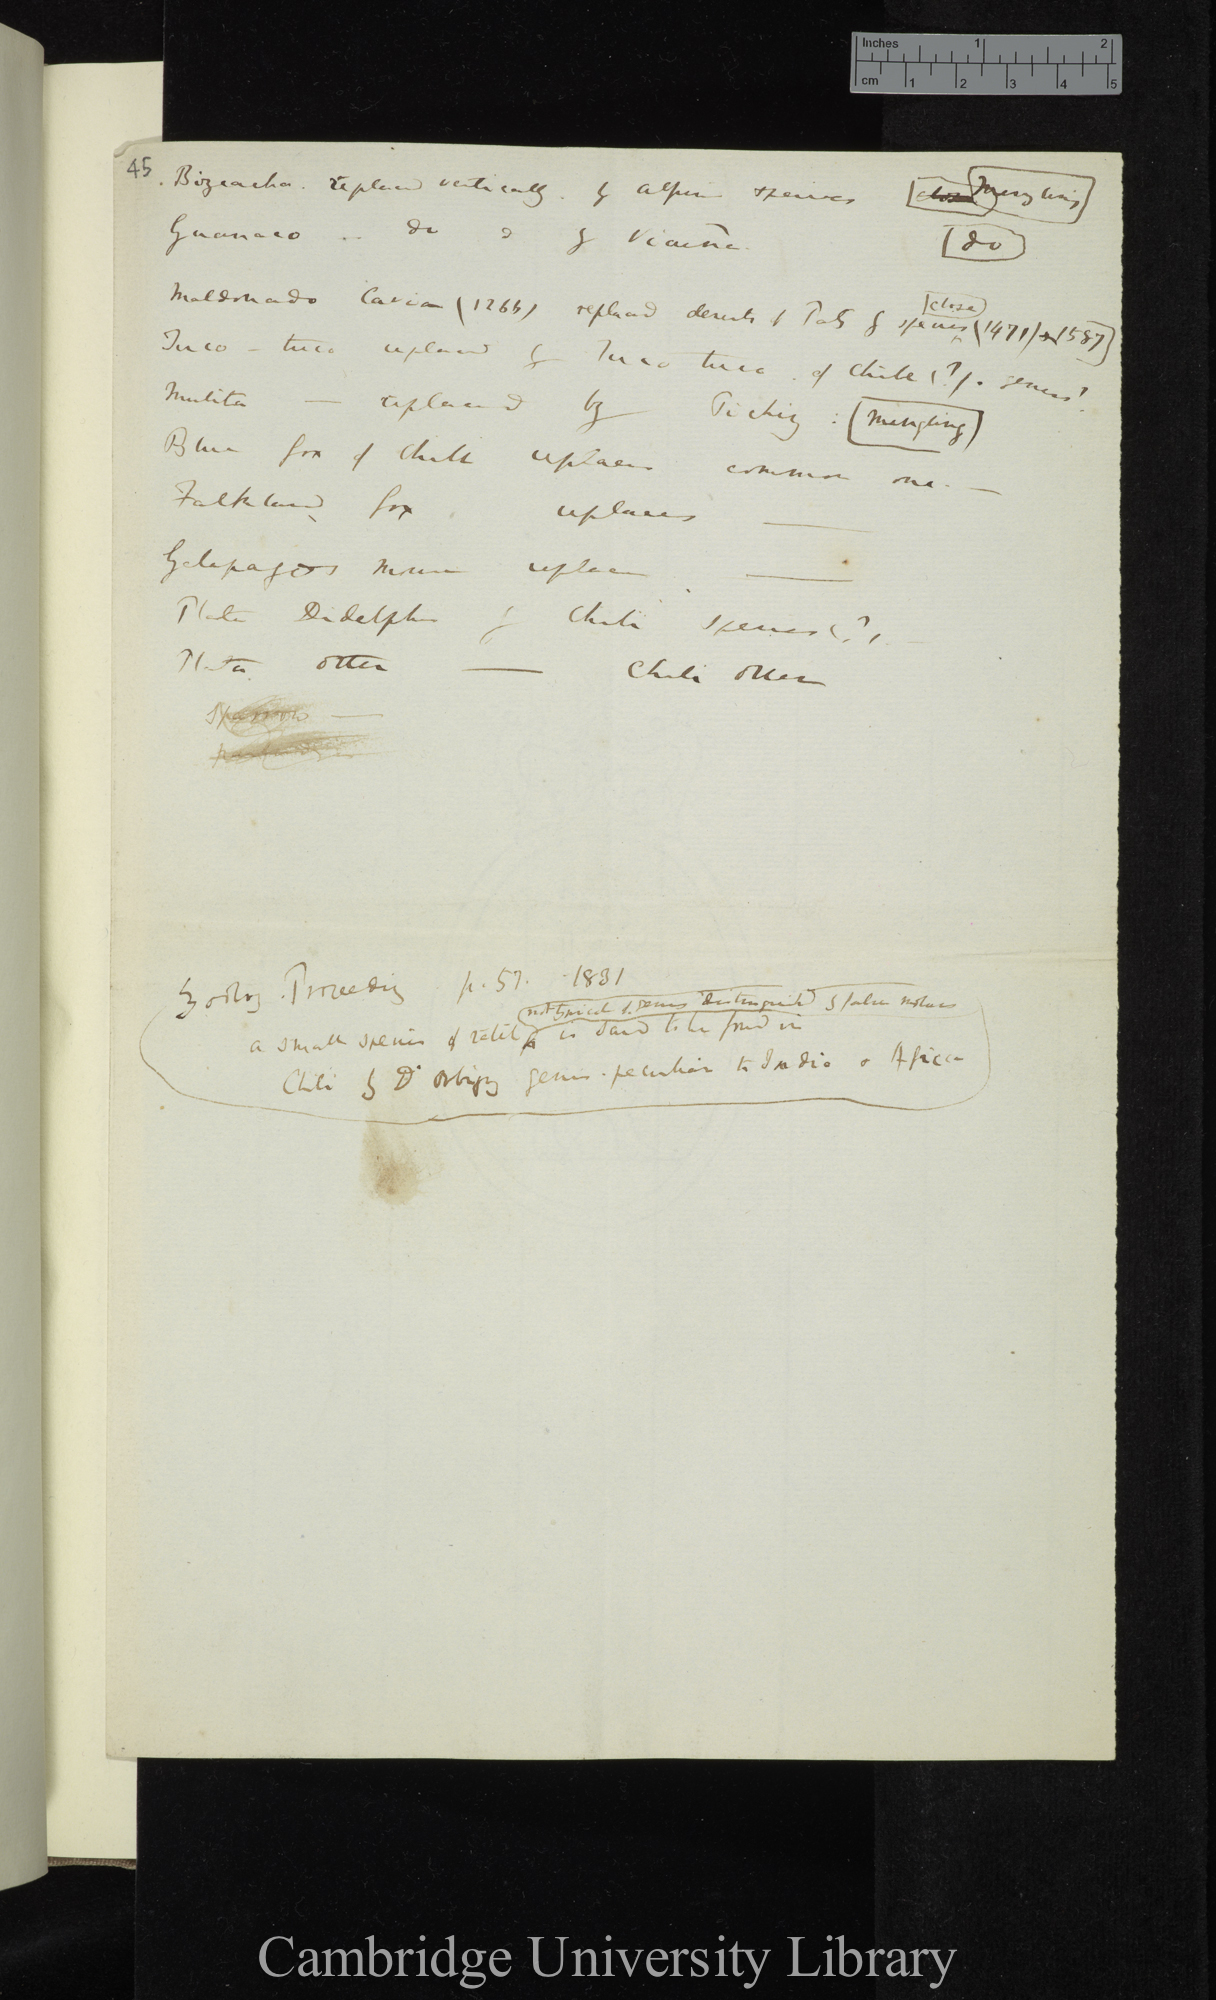 Inches 1 2
cm 1 2 3 4 5
45
Bizcacha. replaced vertically. by alpine species [close] [mingling]
Guanaco .. do do by Vicuña. [do]
[close]
Maldonado Cavia (1266) replaced deserts of Pat: by species (1471) & 1587)
Tuco-tuco replaced by Tuco tuco of Chile (?). genus?
Mulita — replaced by Pichiy: [mingling]
Blue fox of Chile replaces common one. —
Falkland fox replaces —
Galapagos mouse replaces —
Plata Didelphis by Chili species (?)
Plata otter — Chili otter
Sparrow —
Zoolog. Proceeding p. 57. 1831
not brack genus distinguished by false molars
a small species of is said to be found in
Chili by D'Orbigny genus peculiar to India & Africa
Cambridge University Library